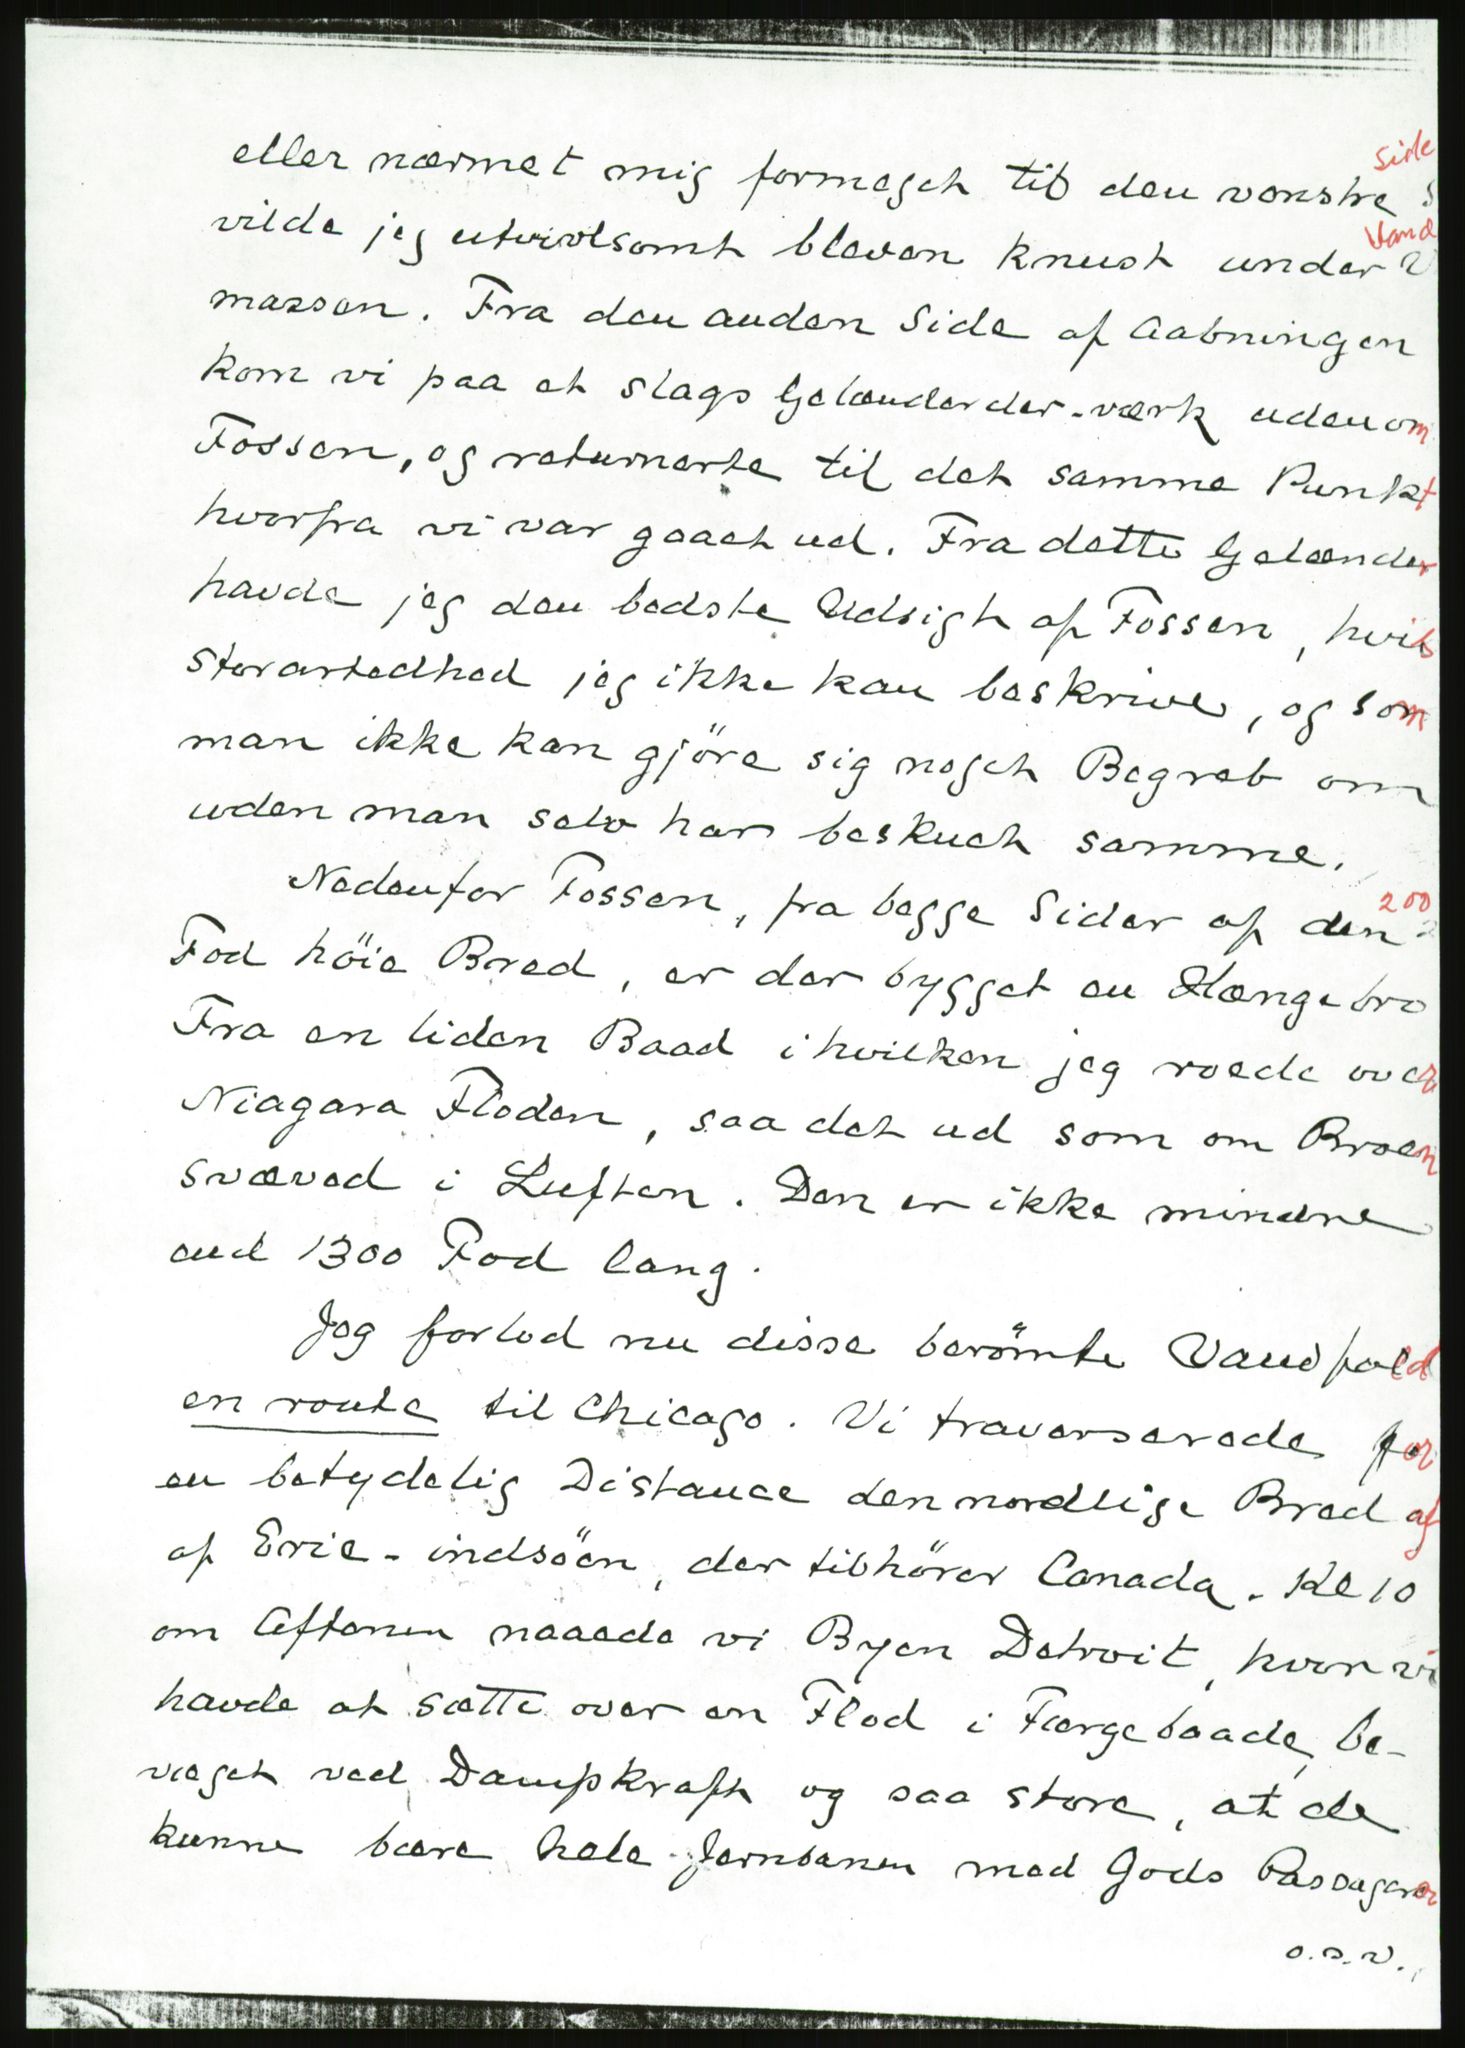 eller nærmet mig formeget til den venstre side
vilde jeg utvivlsomt bleven knust under Vand
massen. Fra den anden Side af Aabningen
kom vi paa et slags Gelænderder-værk udenom
Fossen, og returnerte til det samme Punkt
hvorfra vi var gaaet ud. Fra dette Gelænder
havde jeg den bedste Udsigt af Fossen, hvis
storartedhed jeg ikke kan beskrive, og som
man ikke kan gjöre sig noget Begreb om
uden man selv har beskuet samme.
Nedenfor Fossen, fra begge Sider af den 200
Fod höie Bred, er der bygget en Hængebro
Fra en liden Baad i hvilken jeg roede over
Niagara Floden, saa det ud som om Broen
svæved i Luften. Den er ikke mindre
end 1300 Fod lang.
Jeg forlod nu disse berömte Vandfald
en route til Chicago. Vi traverserede for
en betydelig Distance den nordlige Bred af
af Erie-indsöen, der tilhörer Canada. Kl 10
om Aftenen naaede vi Byen Detroit, hvor vi
havde at sætte over en Flod i Færgebaade, be-
væget ved Dampkraft og saa store, at de
kunne bære hele Jernbanen med Gods Passagerer
o.s.v.